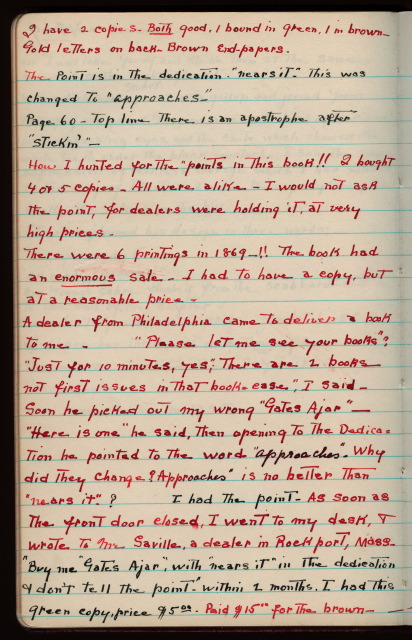 I have 2 copies. Both good, 1 bound in green, 1 in brown-
Gold letters on back- Brown End-papers.
The Point is in the dedication. "nears it" This was
changed To "approaches"
Page 60 - Top line There is an apostrophe after
"stickin'"-
How I hunted for the "points in this book!! I bought
4 or 5 copies- All were alike - I would not ask
the point, for dealers were holding it, at very
high prices-
There were 6 printings in 1869-!! The book had
an enormous sale- I had to have a copy, but
at a reasonable price-
A dealer from Philadelphia came to deliver a book
to me - "Please let me see your books"?
"Just for 10 minutes, yes," There are 2 books
not first issues in that book-case", I said-
Soon he picked out my wrong "Gates Ajar"-
"Here is one" he said, Then opening to The Dedica=
Tion he pointed to the word "approaches". Why
did They change? Approaches" is no better Than
"nears it"? I had the point- As soon as
The front door closed, I went to my desk, &
wrote To Mr Saville, a dealer in Rockport, Mass-
"Buy me "Gates Ajar", with "nears it" in The dedication
& don't tell the point-" within 2 months. I had this
green copy, price $5.00. Paid $15.00 for the brown-